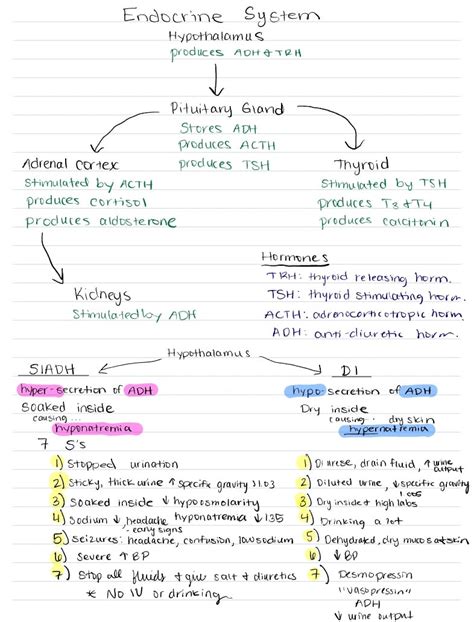 Endocrine System
Hypothalamus
produces ADH & TRH
Pituitary Gland
Stores ADH
produces ACTH
produces TSH
Adrenal cortex
Stimulated by ACTH
produces cortisol
produces aldosterone
Thyroid
Stimulated by TSH
produces T3 & T4
produces calcitonin
Kidneys
Stimulated by ADH
Hormones
TRH: thyroid releasing horm.
TSH: thyroid stimulating horm.
ACTH: adrenocorticotropic horm.
ADH: anti-diuretic horm.
Hypothalamus
SIADH
hyper-secretion of ADH
Soaked inside
causing...
hyponatremia
7 S's
1) Stopped urination
2) Sticky, thick urine ↑ specific gravity >1.03
3) Soaked inside ↓ hypoosmolarity
4) Sodium ↓, headache, hyponatremia ↓ 135
- early signs
5) Seizures: headache, confusion, low sodium
6) Severe ↑ BP
7) Stop all fluids + give salt & diuretics
* No IV or drinking
DI
hypo-secretion of ADH
Dry inside
causing... dry skin
hypernatremia
1) Diurese, drain fluid, ↑ urine output
2) Diluted urine, ↓ specific gravity
1.005
3) Dry inside & high labs
4) Drinking a lot
5) Dehydrated, dry mucosa & skin
6) ↓ BP
7) Desmopressin
"vasopressin"
ADH
↓ urine output